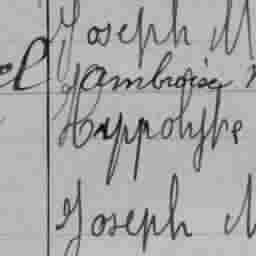 Joseph M
Jambroise
Hyppolyte
Joseph M